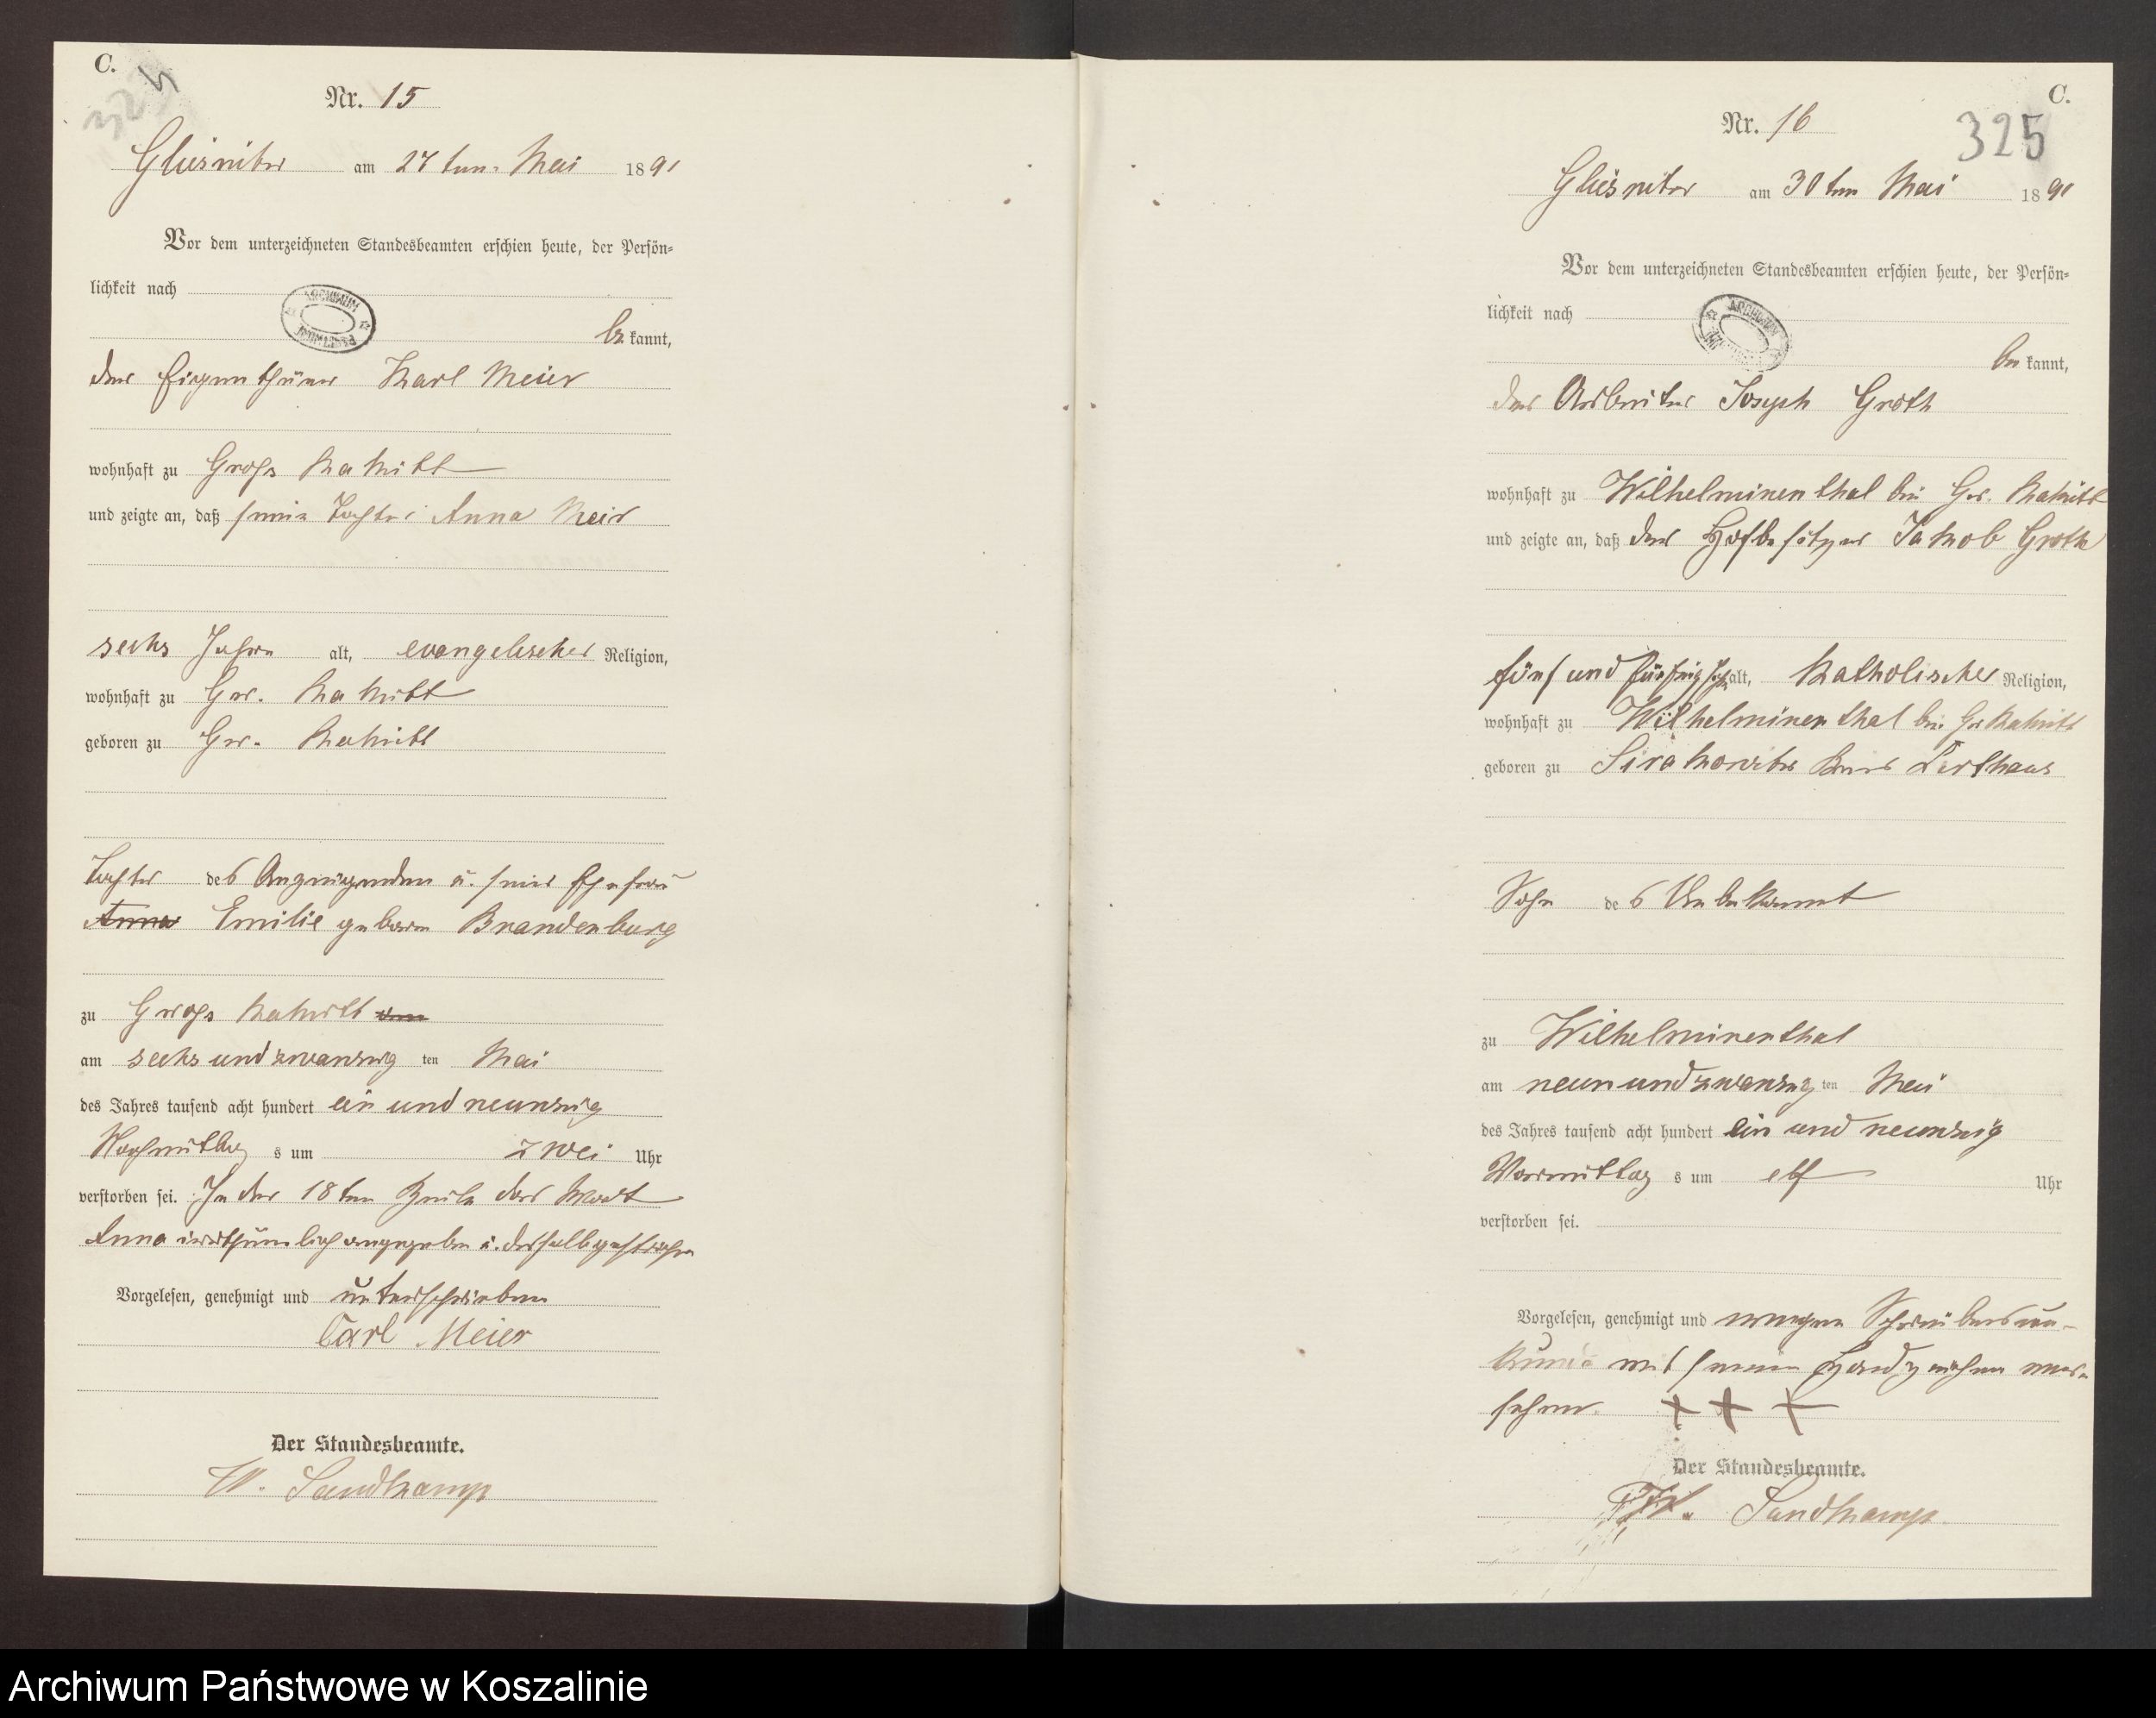 C.
324
Nr. 15
Gliesnitz am 27ten Mai 1891
Vor dem unterzeichneten Standesbeamten erschien heute, der Persön-
lichkeit nach
ARCHIWUM
be kannt,
der Eigenthümer Karl Meier
wohnhaft zu Groß Rakitt
und zeigte an, daß seine Tochter Anna Meir
sechs Jahre alt, evangelischer Religion,
wohnhaft zu Gr. Rakitt
geboren zu Gr. Rakitt
Tochter des Anzeigenden u. seiner Ehefrau
Anna Emilie geborene Brandenburg
zu Groß Rakitt
am sechsundzwanzig ten Mai
des Jahres tausend acht hundert ein und neunzig
Nachmittag s um zwei Uhr
verstorben sei. In der 18ten Zeile das Wort
Anna irrthümlich angegeben u. deshalb gestrichen
Vorgelesen, genehmigt und unterschrieben
Carl Meier
Der Standesbeamte.
W. Sandkamp
C.
325
Nr. 16
Gliesnitz am 30ten Mai 1891
Vor dem unterzeichneten Standesbeamten erschien heute, der Persön-
lichkeit nach
ARCHIWUM
be kannt,
der Arbeiter Joseph Groth
wohnhaft zu Wilhelminenthal bei Gr. Rakitt
und zeigte an, daß der Hofbesitzer Jakob Groth
fünf und fünfzig Jahr alt, katholischer Religion,
wohnhaft zu Wilhelminenthal bei Gr Rakitt
geboren zu Sirakowitz Kreis Carthaus
Sohn des Unbekannt
zu Wilhelminenthal
am neunundzwanzig ten Mai
des Jahres tausend acht hundert ein und neunzig
Vormittag s um elf Uhr
verstorben sei.
Vorgelesen, genehmigt und wegen Schreibensun-
kunde mit seinem Handzeichen ver-
sehen. + + +
Der Standesbeamte.
W. Sandkamp.
Archiwum Państwowe w Koszalinie